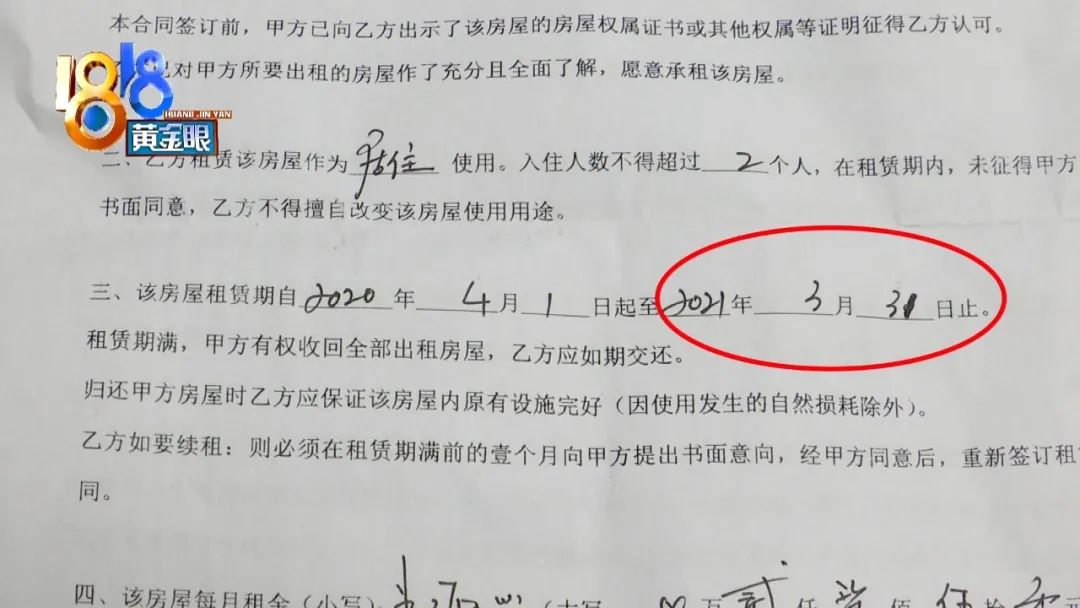 本合同签订前，甲方已向乙方出示了该房屋的房屋权属证书或其他权属等证明征得乙方认可。
已对甲方所要出租的房屋作了充分且全面了解，愿意承租该房屋。
1818
HUANG JIN YAN
黄金眼
二、乙方租赁该房屋作为居住使用。入住人数不得超过2个人，在租赁期内，未征得甲方
书面同意，乙方不得擅自改变该房屋使用用途。
三、该房屋租赁期自2020年4月1日起至2021年3月31日止。
租赁期满，甲方有权收回全部出租房屋，乙方应如期交还。
归还甲方房屋时乙方应保证该房屋内原有设施完好（因使用发生的自然损耗除外）。
乙方如要续租：则必须在租赁期满前的壹个月向甲方提出书面意向，经甲方同意后，重新签订租
同。
四、该房屋每月租金（小写） （大写 万贰仟 佰